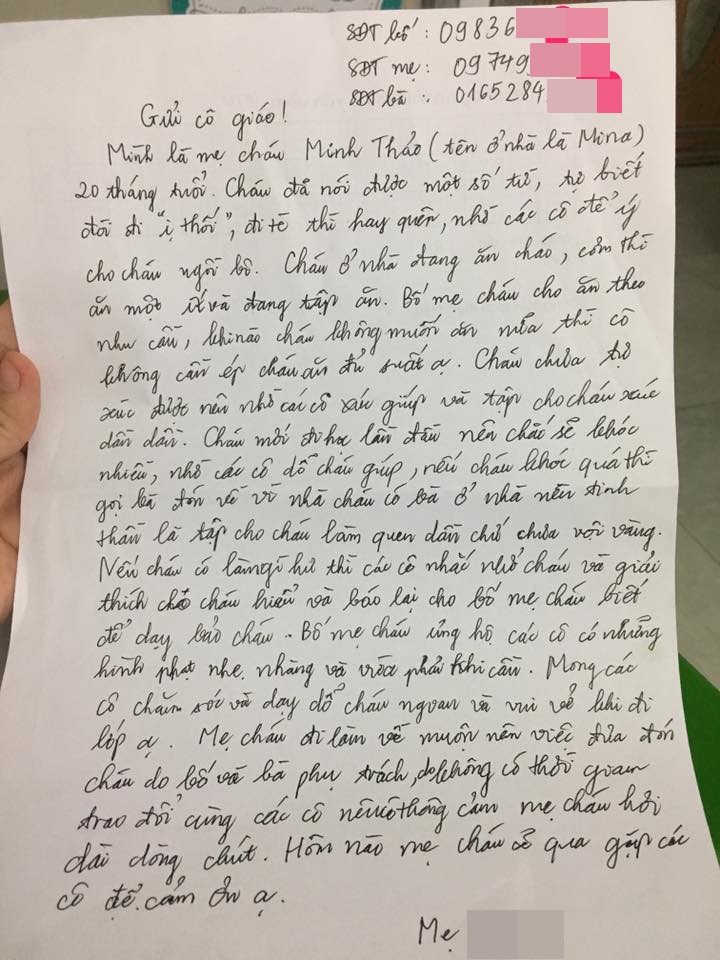 SĐT bố: 09836
SĐT mẹ: 09749
SĐT bà: 0165284
Gửi cô giáo!
Mình là mẹ cháu Minh Thảo (tên ở nhà là Mina)
20 tháng tuổi. Cháu đã nói được một số từ, tự biết
đòi đi "ị thối", đi tè thì hay quên, nhờ các cô để ý
cho cháu ngồi bô. Cháu ở nhà đang ăn cháo, cơm thì
ăn một ít và đang tập ăn. Bố mẹ cháu cho ăn theo
nhu cầu, khi nào cháu không muốn ăn nữa thì cô
không cần ép cháu ăn đủ suất ạ. Cháu chưa tự
xúc được nên nhờ các cô xúc giúp và tập cho cháu xúc
dần dần. Cháu mới đi học lần đầu nên chắc sẽ khóc
nhiều, nhờ các cô dỗ cháu giúp, nếu cháu khóc quá thì
gọi bà đón về vì nhà cháu có bà ở nhà nên tinh
thần là tập cho cháu làm quen dần chứ chưa vội vàng.
Nếu cháu có làm gì hư thì các cô nhắc nhở cháu và giải
thích cho cháu hiểu và báo lại cho bố mẹ cháu biết
để dạy bảo cháu. Bố mẹ cháu ủng hộ các cô có những
hình phạt nhẹ nhàng và vừa phải khi cần. Mong các
cô chăm sóc và dạy dỗ cháu ngoan và vui vẻ khi đi
lớp ạ. Mẹ cháu đi làm về muộn nên việc đưa đón
cháu do bố và bà phụ trách, do không có thời gian
trao đổi cùng các cô nên cô thông cảm mẹ cháu hơi
dài dòng chút. Hôm nào mẹ cháu sẽ qua gặp các
cô để cảm ơn ạ.
Mẹ